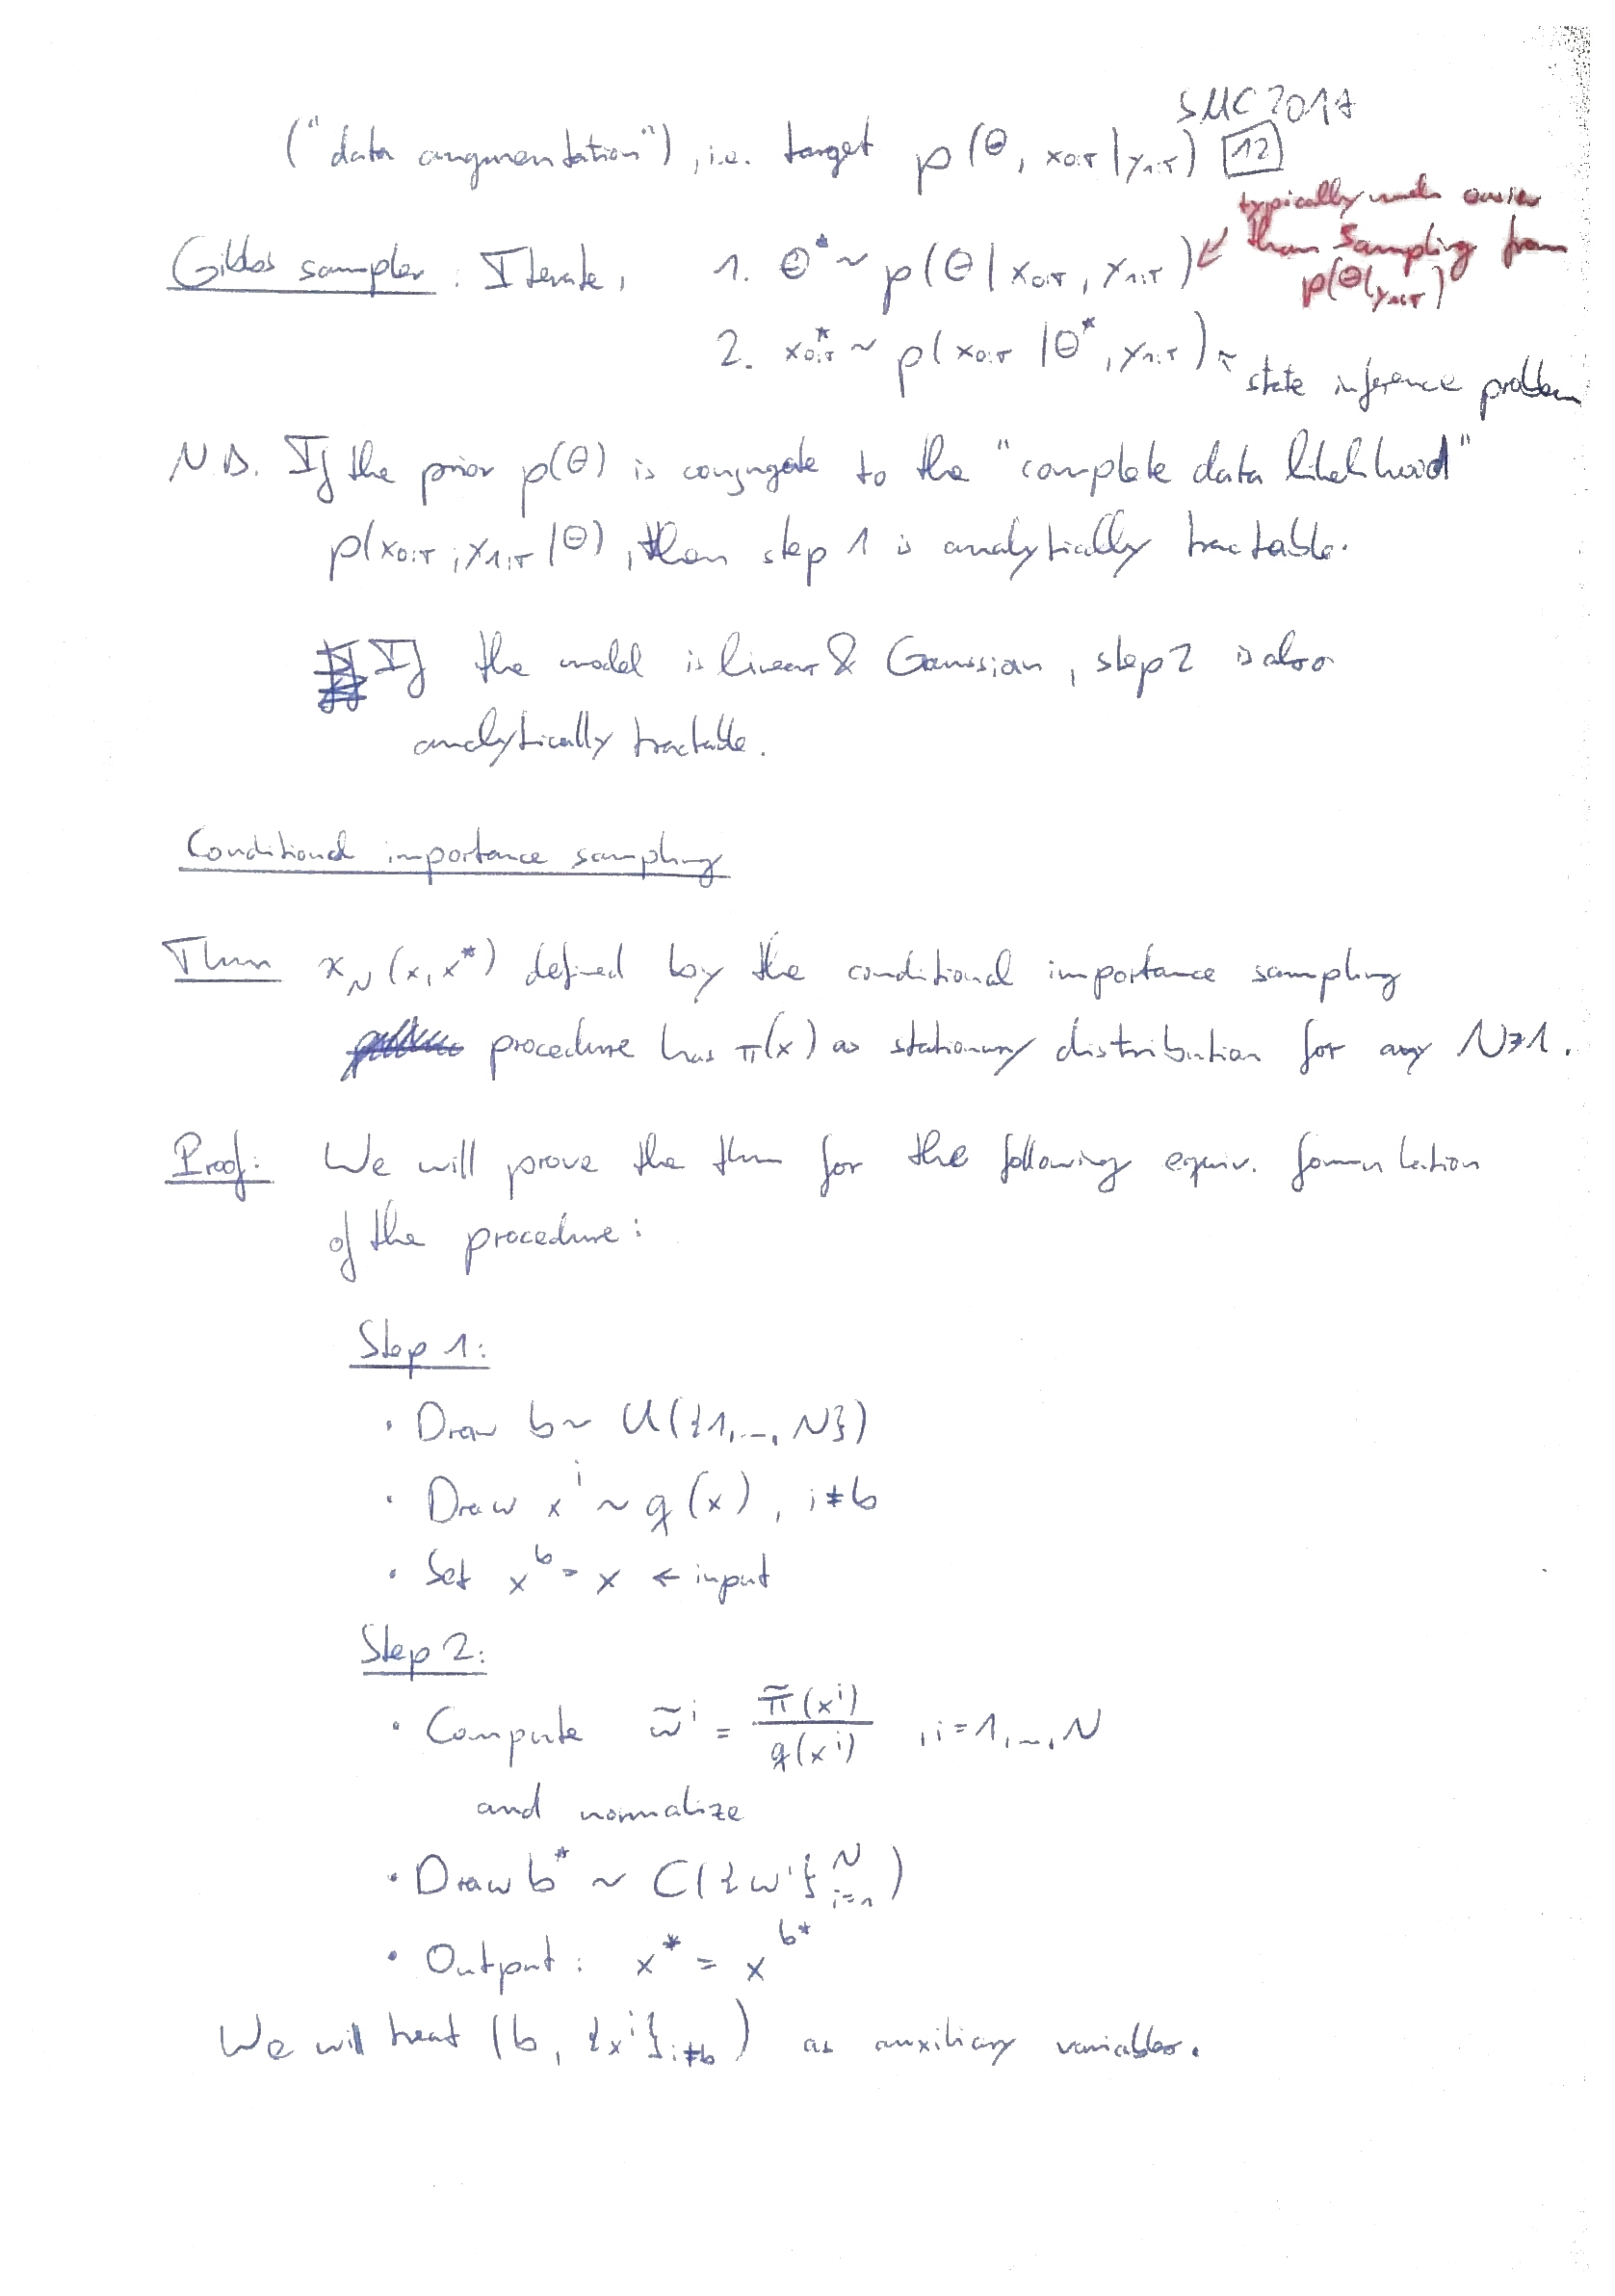 SMC 2017
("data augmentation"), i.e. target p(θ, x₀:T | y₁:T) 12
typically much easier
than sampling from
p(θ|y₁:T)
Gibbs sampler: Iterate, 1. θ* ~ p(θ | x₀:T, y₁:T) ←
2. x₀:T* ~ p(x₀:T | θ*, y₁:T) ← state inference problem
N.B. If the prior p(θ) is conjugate to the "complete data likelihood"
p(x₀:T, y₁:T | θ), then step 1 is analytically tractable.
If the model is linear & Gaussian, step 2 is also
analytically tractable.
Conditional importance sampling
Thm κ_N(x, x*) defined by the conditional importance sampling
procedure has π(x) as stationary distribution for any N≥1.
Proof: We will prove the thm for the following equiv. formulation
of the procedure:
Step 1:
• Draw b ~ U({1,..., N})
• Draw xⁱ ~ q(x), i≠b
• Set x^b = x ← input
Step 2:
• Compute w̃ⁱ = π̃(xⁱ) / q(xⁱ) , i=1,...,N
and normalize
• Draw b* ~ C({wⁱ}_{i=1}^N)
• Output: x* = x^{b*}
We will treat (b, {xⁱ}_{i≠b}) as auxiliary variables.